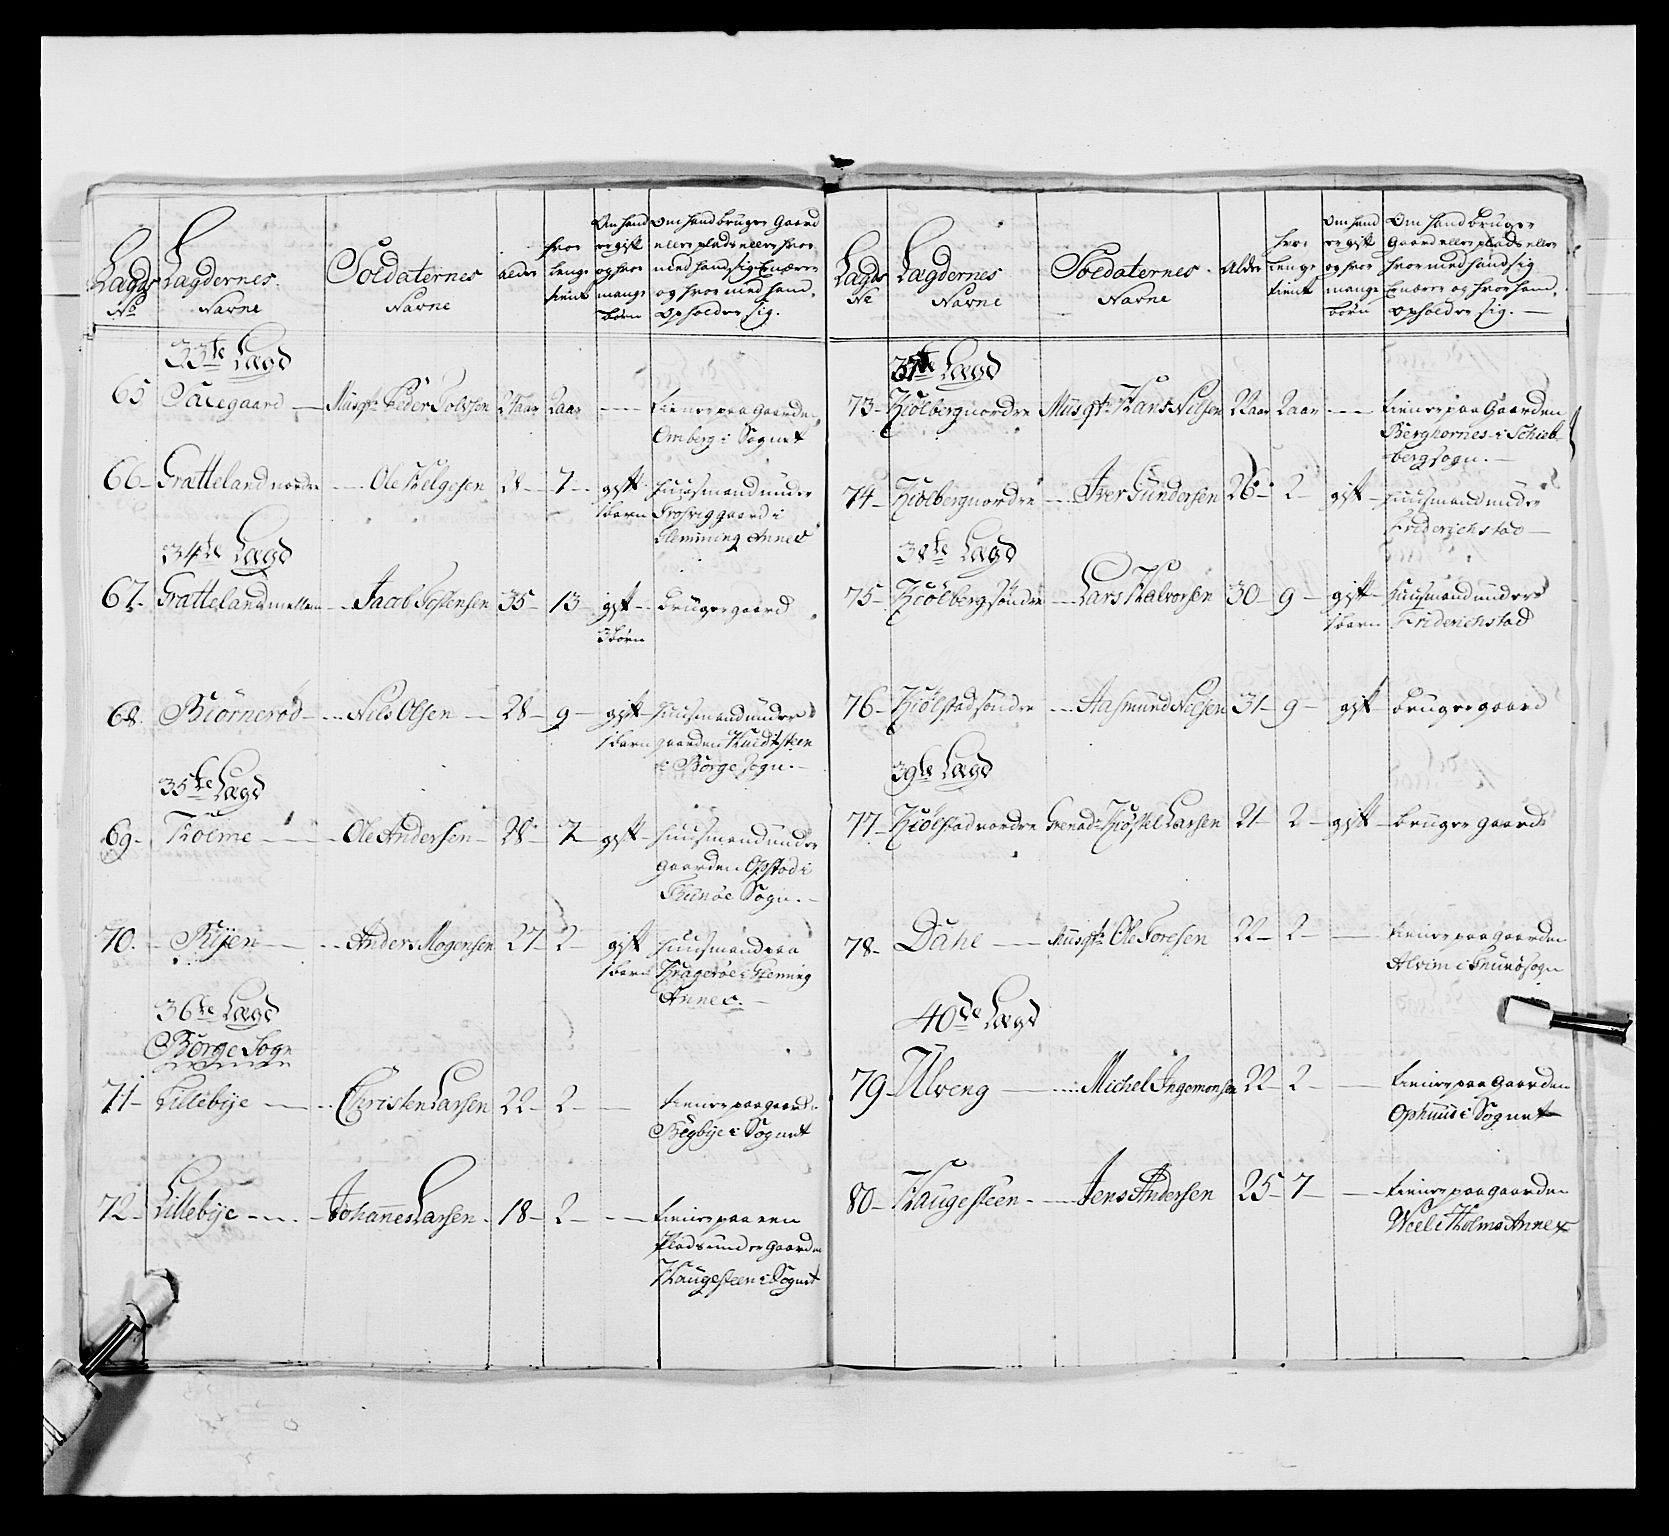 Lægds No
Lægdernes Navne
Soldaternes Navne
alder
hvor lenge tient
Om hand er gift og hvor mange børn
Om hand bruger Gaard eller plads eller hvor med hand sig Enærer og hvor med hand opholder sig.
33te Lægd
65 gaard — Musqt: Peder Tolvsen 21 aar 2 aar — tiener paa Gaarden
Omberg i Sognet
66 – Grætteland nordre — Ole Helgesen 28 – 7 – gift huusmand under
1 barn gaard i
Glemming Annex
34te Lægd
67. Grætteland mellem — Jacob Tostensen 35 – 13 – gift – bruger gaard
3 børn
68. Biörnerød — Nils Olsen — 28 – 9 – gift – huusmand under
1 barn gaarden steen
i Borge sogn. —
35te Lægd
69 – Holme — Ole Andersen – 28 – 7 – gift – huusmand under
gaarden Opstad i
Thunøe Sogn. —
70. – — Anders Mogensen 27 – 2 – gift huusmand paa
1 barn Kragerøe i Glemming
Annex. —
36te Lægd
Borge Sogn
71 – Lillebÿe — Christen Larsen 22 – 2 — tiener paa gaarden
Begbÿe i Sognet
72 – Lillebÿe — Johannes Larsen – 18 – 2 — tiener paa een
Plads under Gaarden
Haugesteen i Sognet
Lægds No
Lægdernes Navne
Soldaternes Navne
Alder
hvor lenge tient
Om hand er gift og hvor mange børn
Om hand bruger Gaard eller plads eller hvor med hand sig Enærer og hvor hand opholder sig. —
37te Lægd
73 – Kiölberg nordre Musqt: Hans Nilsen 22 aar 2 aar — tiener paa Gaarden
Berghornes i Schieb-
berg sogn. —
74 – Kiölberg nordre — Iver Gundersen 26 – 2 – gift – huusmand under
Friderichstad —
38te Lægd
75 – Kiölberg söndre — Lars Halvorsen 30 – 9 – gift – huusmand under
1 barn Friderichstad
76 – Kiölstad söndre — Aasmund Nilsen 31 – 9 – gift – bruger gaard
39te Lægd
77 – Kiölstad nordre Grenad: Kiöstel Larsen 21 – 2 – gift – bruger gaard
78 – Dahl — Musqt: Ole Toresen 22 – 2 — tiener paa gaarden
Alvim i Thunö sogn
40de Lægd
79 – Ulveng — Michel Ingemonsen 22 – 2 — tiener paa Gaarden
Ophuus i Sognet
80 – Haugesteen — Jens Andersen 25 – 7 — tiener paa gaarden
Weel i Holms Annex